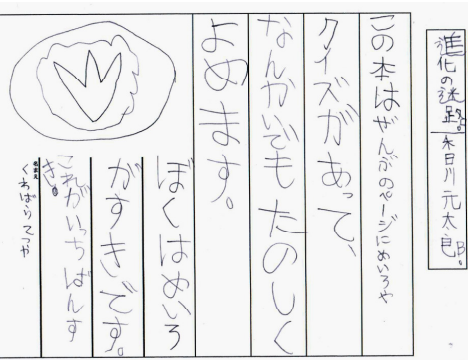 進化の迷路。 香川元太郎B。
この本はぜんぶのページにめいろや
クイズがあって、
なんかいでもたのしく
よめます。
ぼくはめいろ
がすきです。
これがいっちばんす
き。
なまえ
くわばらてつや